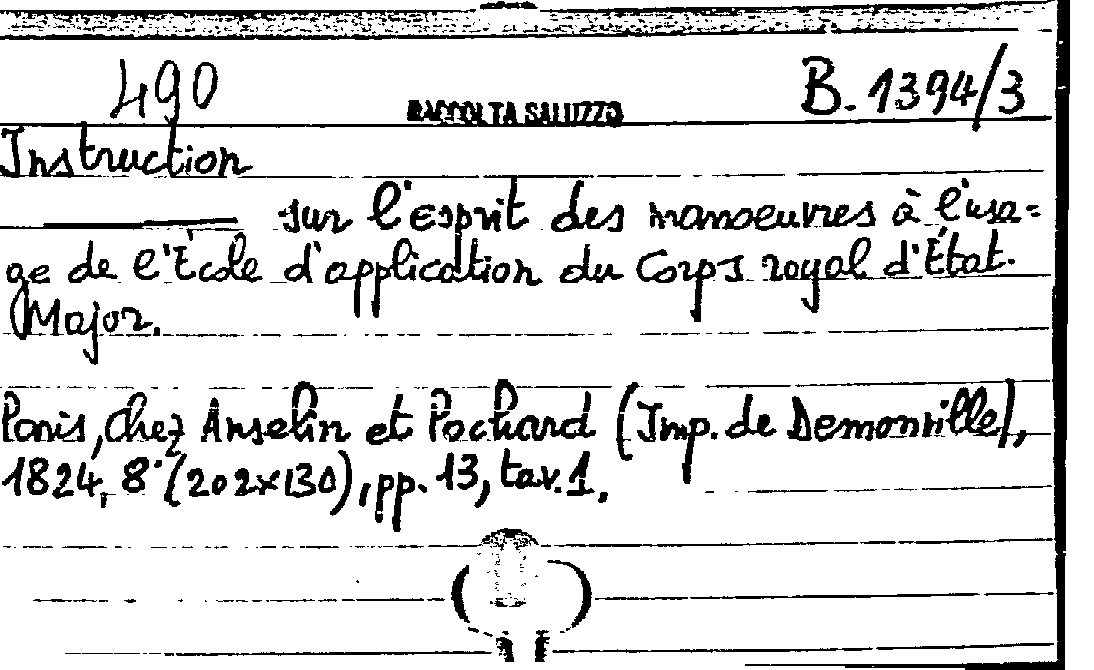 490 RACCOLTA SALUZZO B. 1394/3
Instruction
sur l'esprit des manoeuvres à l'usa=
ge de l'École d'application du Corps royal d'État-
Major.
Paris, chez Anselin et Pochard (Imp. de Demonville),
1824, 8° (202x130), pp. 13, tav. 1.